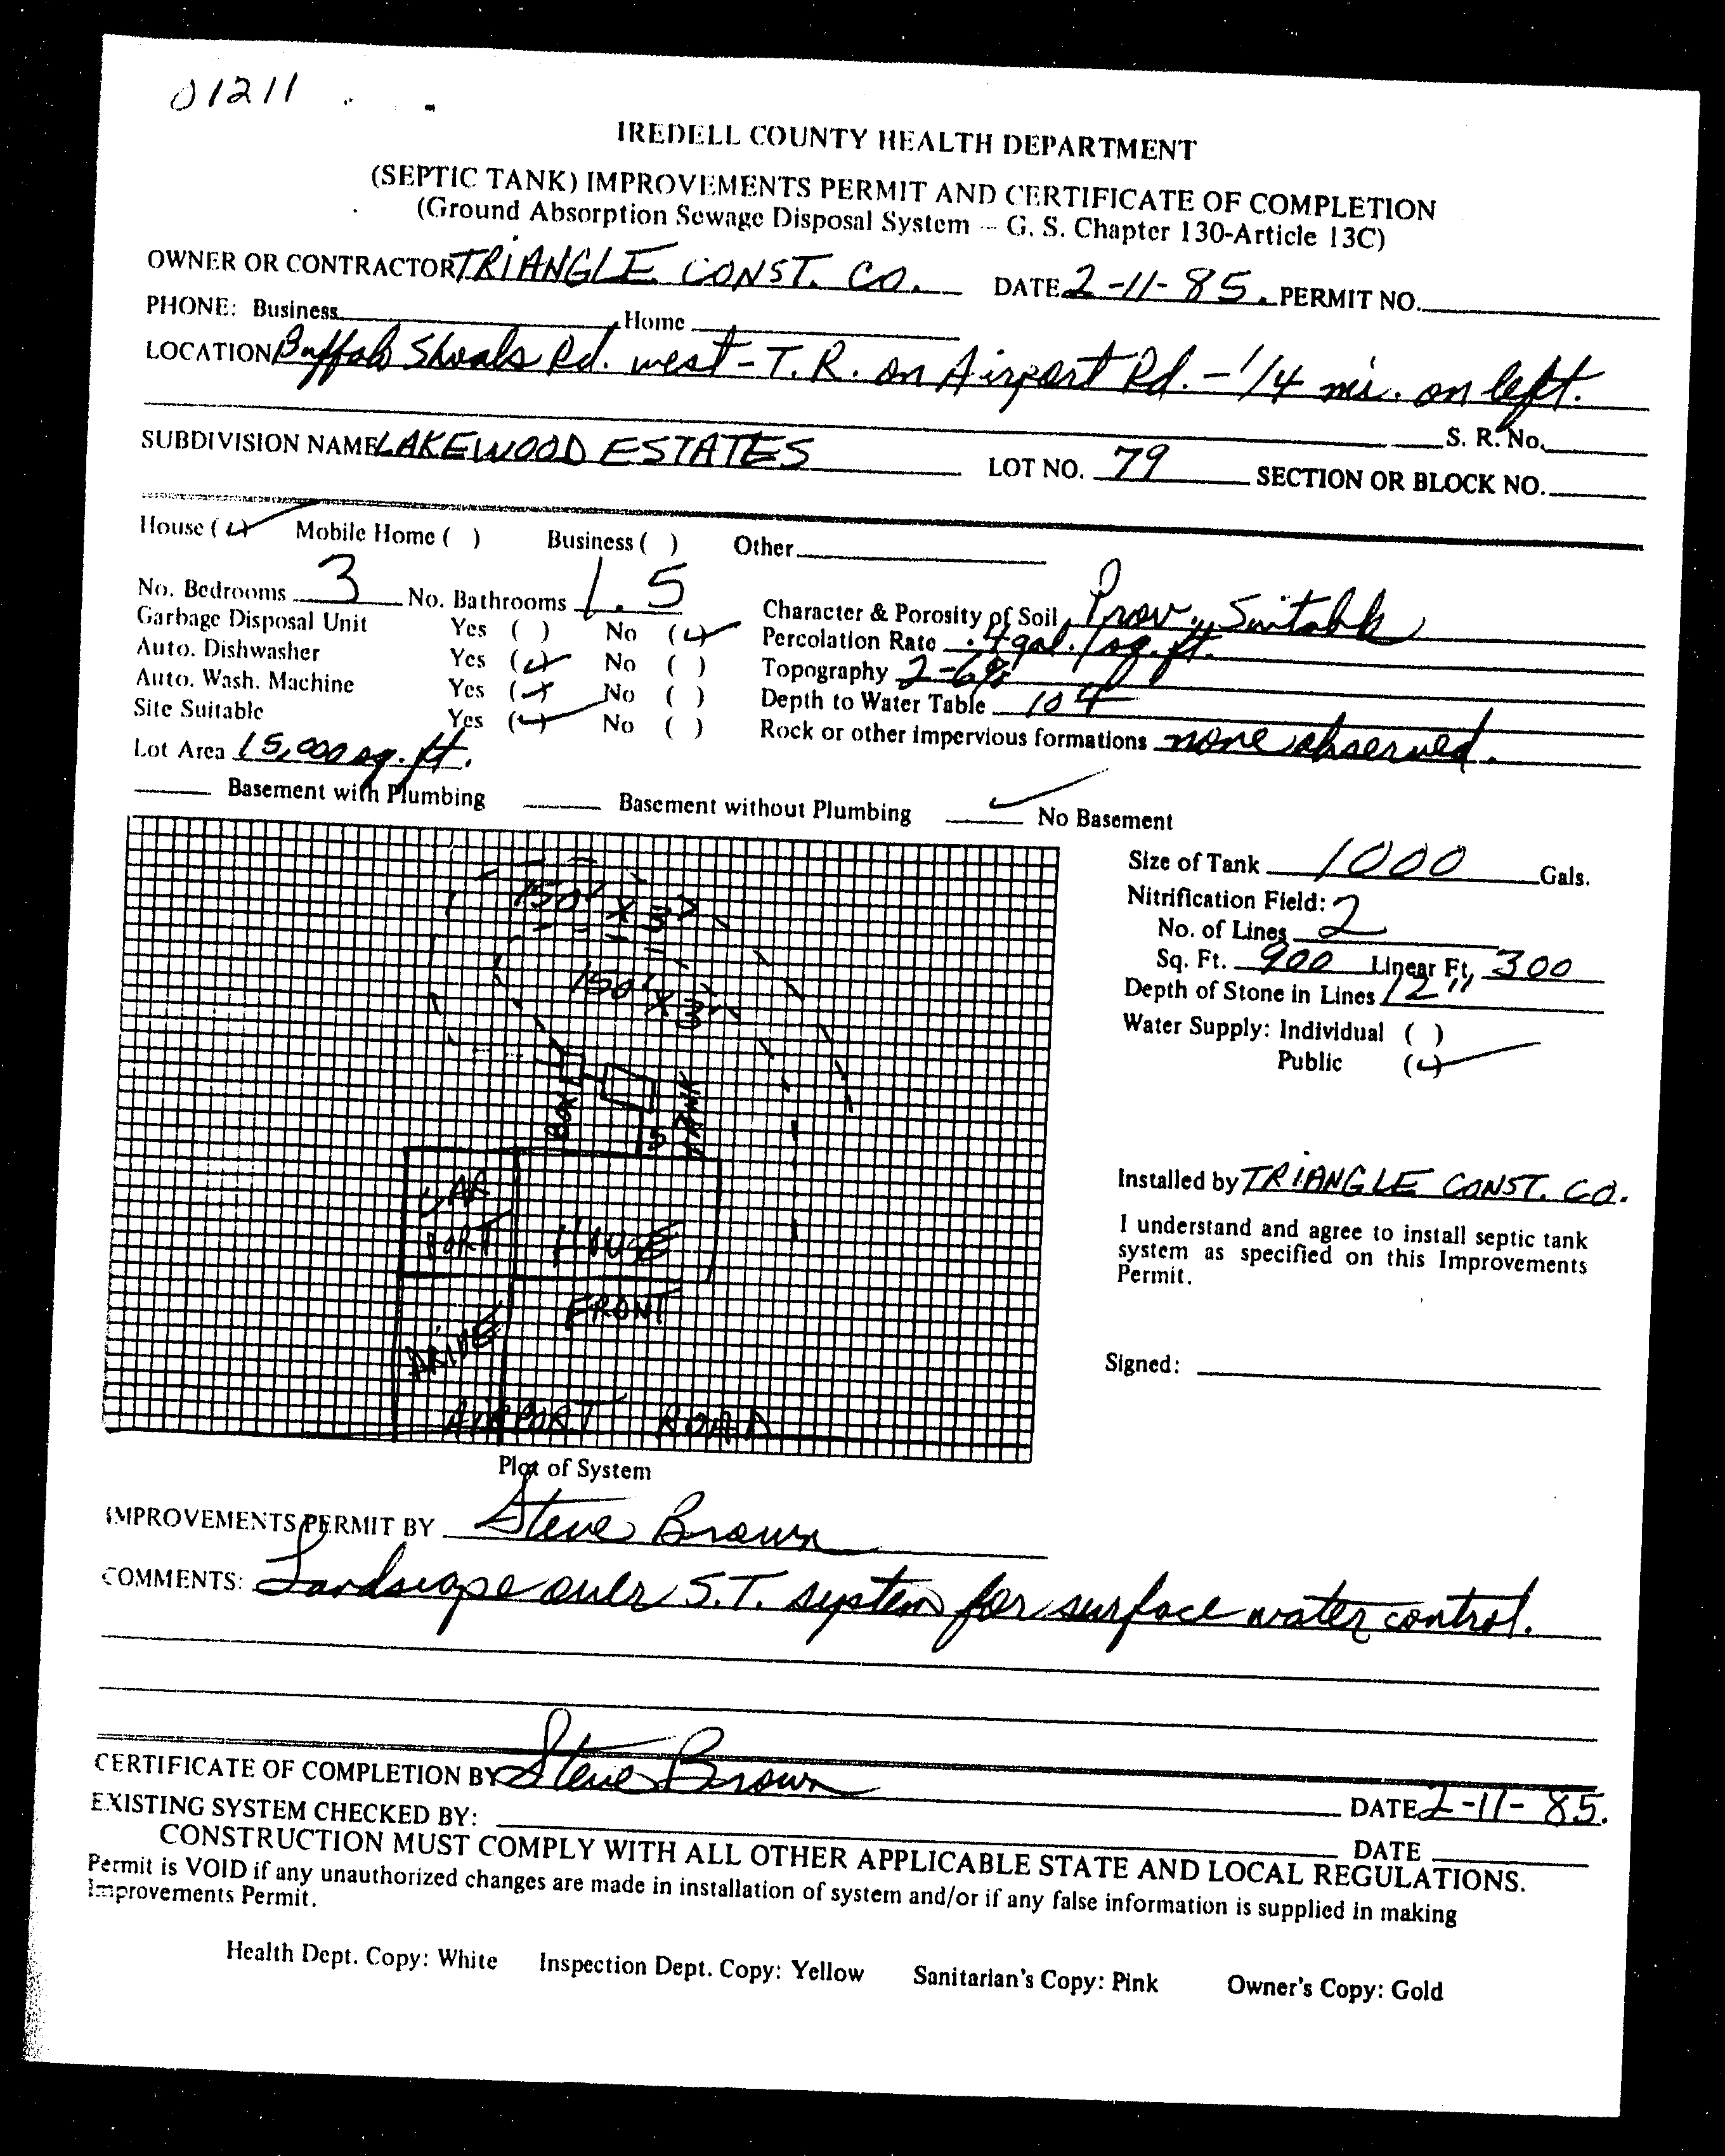 01211
IREDELL COUNTY HEALTH DEPARTMENT
(SEPTIC TANK) IMPROVEMENTS PERMIT AND CERTIFICATE OF COMPLETION
(Ground Absorption Sewage Disposal System -- G. S. Chapter 130-Article 13C)
OWNER OR CONTRACTOR TRIANGLE CONST. CO. DATE 2-11-85. PERMIT NO.
PHONE: Business Home
LOCATION Buffalo Shoals Rd. west - T.R. on Airport Rd. - 1/4 mi. on left.
S. R. No.
SUBDIVISION NAME LAKEWOOD ESTATES LOT NO. 79 SECTION OR BLOCK NO.
House (✓) Mobile Home ( ) Business ( ) Other
No. Bedrooms 3 No. Bathrooms 1.5 Character & Porosity of Soil Prov. Suitable
Garbage Disposal Unit Yes ( ) No (✓) Percolation Rate .4 gal./sq.ft.
Auto. Dishwasher Yes (✓) No ( ) Topography 2-6%
Auto. Wash. Machine Yes (✓) No ( ) Depth to Water Table
Site Suitable Yes (✓) No ( ) Rock or other impervious formations none observed.
Lot Area 15,000 sq. ft.
Basement with Plumbing Basement without Plumbing ✓ No Basement
150' X 3'
150' X 3'
BOX
TANK
CAR
PORT
HOUSE
FRONT
DRIVE
AIRPORT ROAD
Plot of System
Size of Tank 1000 Gals.
Nitrification Field:
No. of Lines 2
Sq. Ft. 900 Linear Ft. 300
Depth of Stone in Lines 12"
Water Supply: Individual ( )
Public (✓)
Installed by TRIANGLE CONST. CO.
I understand and agree to install septic tank
system as specified on this Improvements
Permit.
Signed:
IMPROVEMENTS PERMIT BY Steve Brown
COMMENTS: Landscape over S.T. system for surface water control.
CERTIFICATE OF COMPLETION BY Steve Brown DATE 2-11-85.
EXISTING SYSTEM CHECKED BY: DATE
CONSTRUCTION MUST COMPLY WITH ALL OTHER APPLICABLE STATE AND LOCAL REGULATIONS.
Permit is VOID if any unauthorized changes are made in installation of system and/or if any false information is supplied in making
Improvements Permit.
Health Dept. Copy: White Inspection Dept. Copy: Yellow Sanitarian's Copy: Pink Owner's Copy: Gold